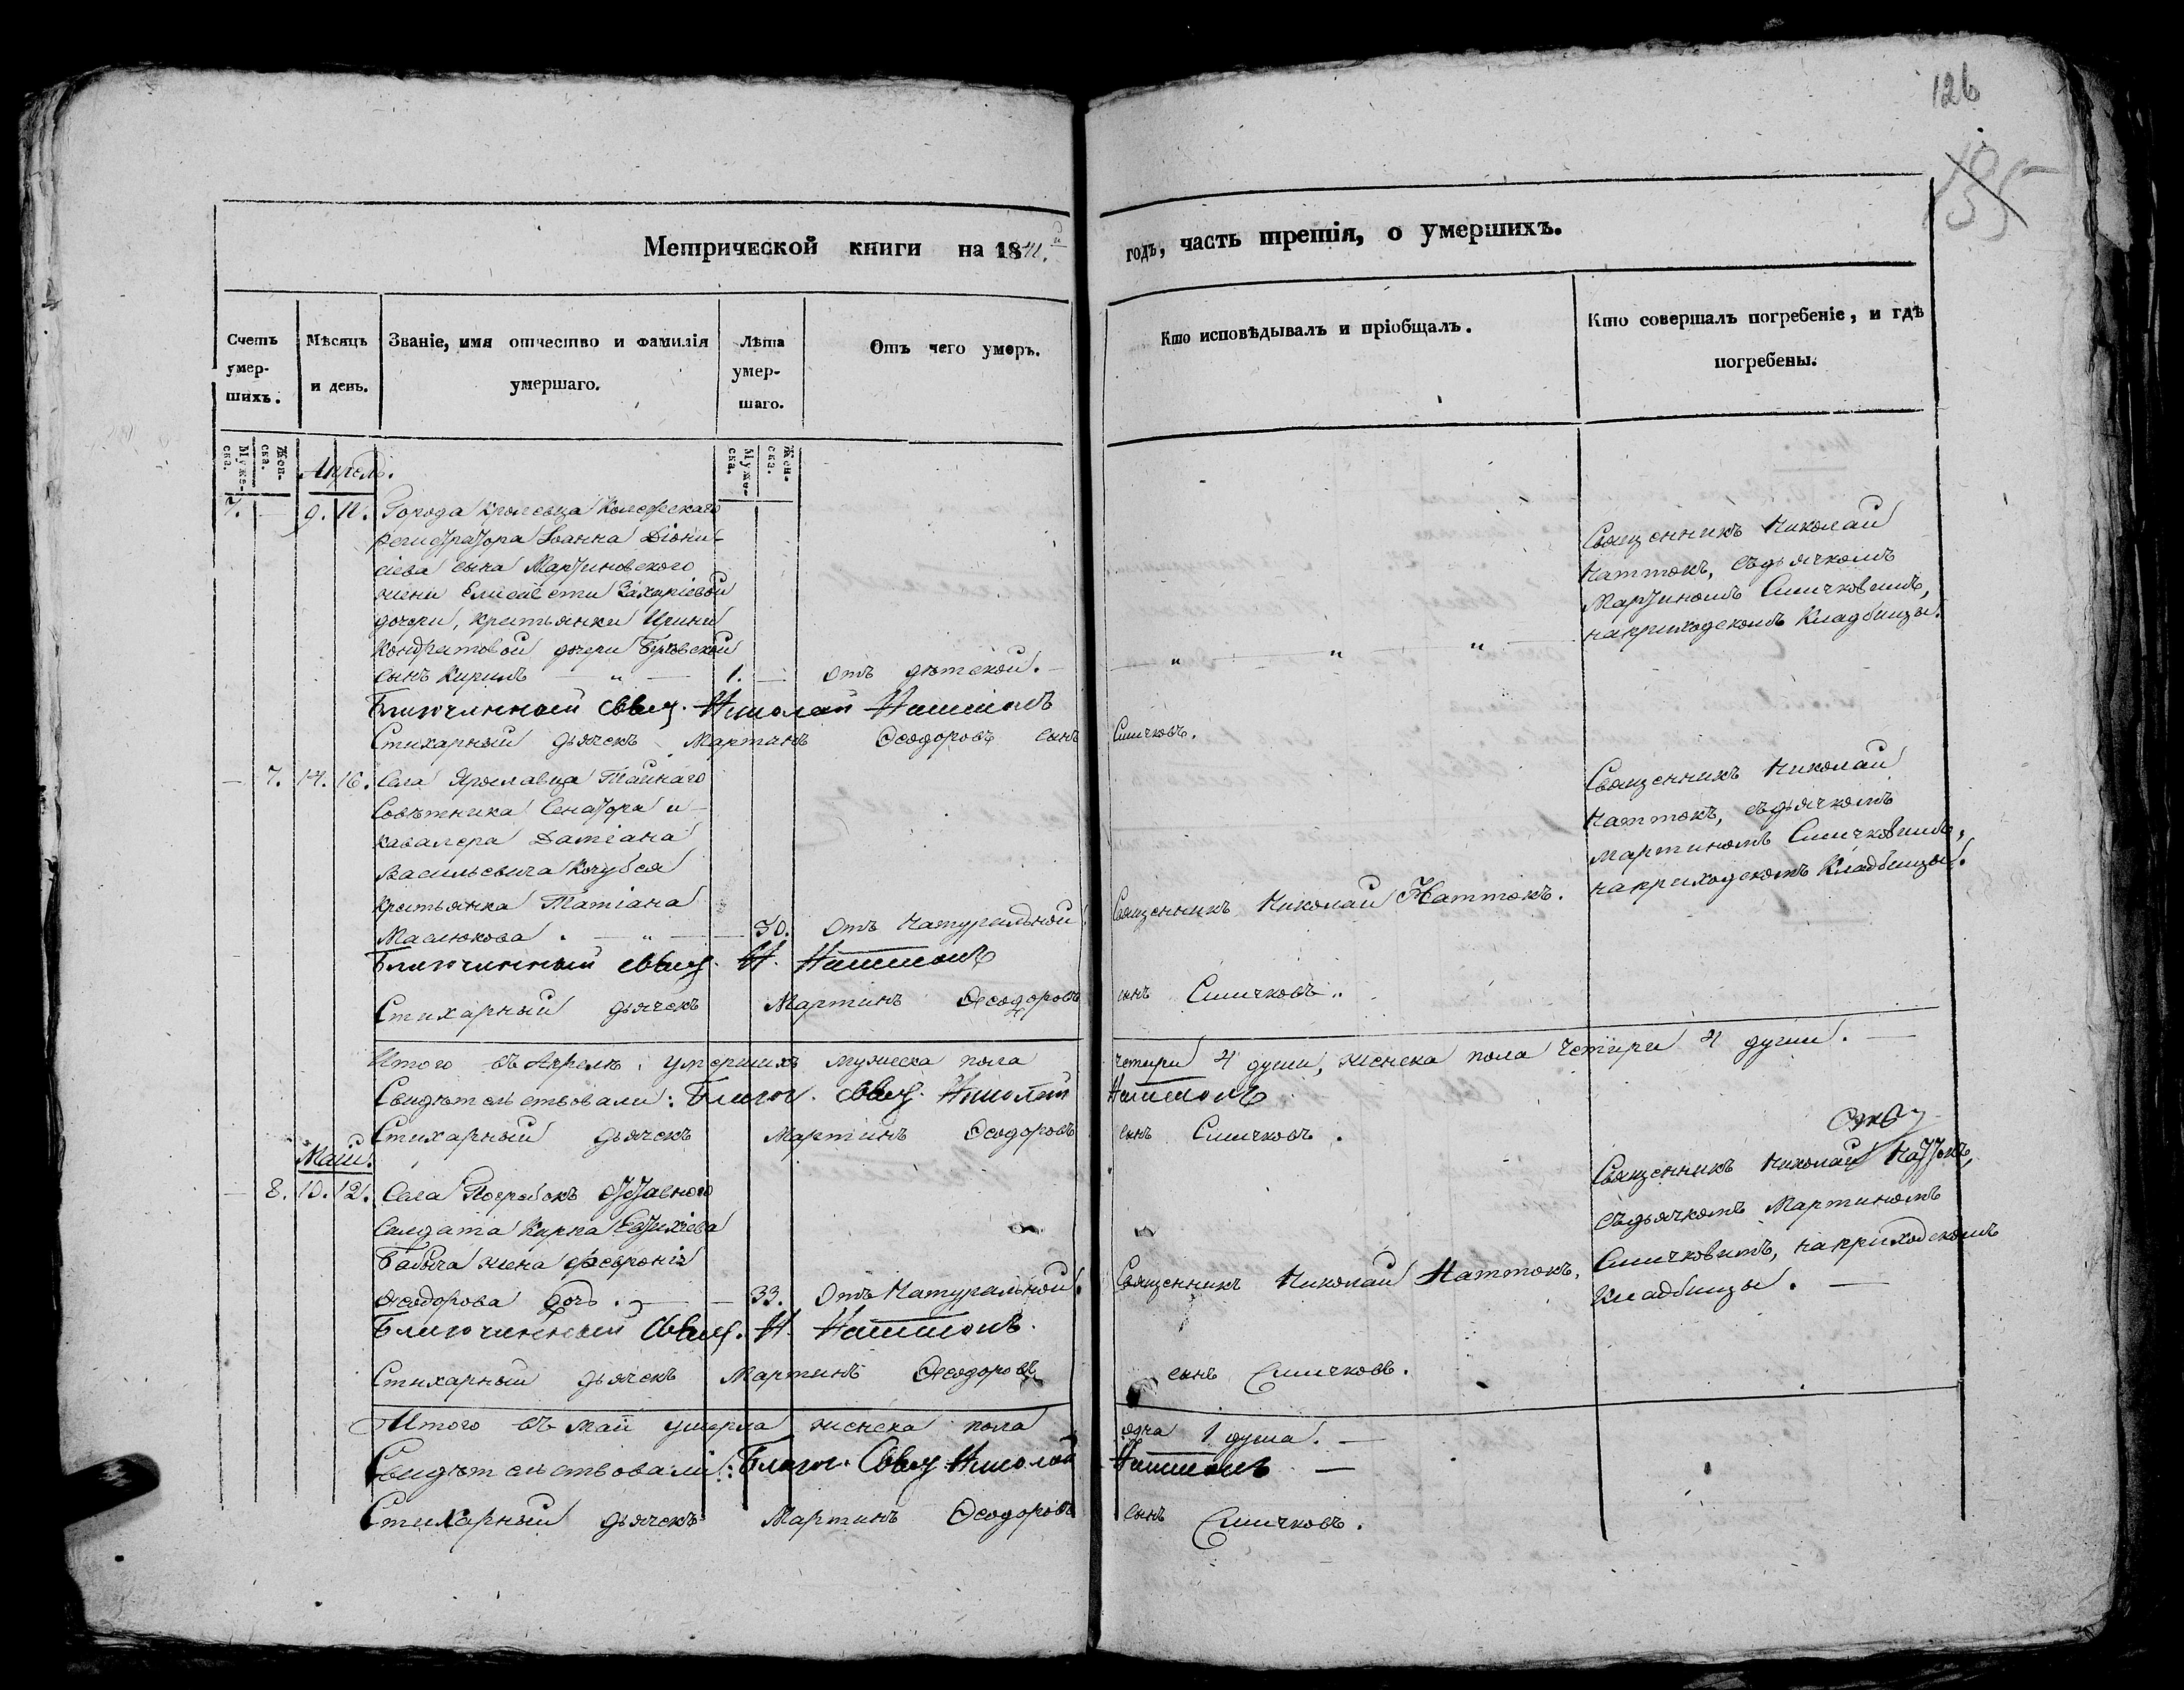 126
135
Метрической книги на 1841.й годъ, часть третія, о умершихъ.
Счетъ умер-шихъ.
Мѣсяцъ и день.
Званіе, имя отчество и фамилія умершаго.
Лѣта умер-шаго.
Отъ чего умеръ.
Кто исповѣдывалъ и пріобщалъ.
Кто совершалъ погребеніе, и гдѣ погребены.
Муже-ска.
Жен-ска.
Муже-ска.
Жен-ска.
Апрель.
7. — 9. 11. Города Кролевца Колежскаго
регистратора Іоанна Діони-
сіева сына Мартиновского
жени Елисаветы Захаріевой
дочери, крестьянки Ирини
Кондратовой дочери
сынъ Кирилъ — " — 1. — отъ дѣтской. — " — " — " —
Священникъ Николай
Наттокъ, съ дьячкомъ
Мартиномъ Сличковимъ,
на приходскомъ Кладбищы.
Благочинный Свящ. Николай Наттокъ
Стихарный дьячекъ Мартинъ Ѳеодоровъ сынъ Сличковъ.
— 7. 14. 16. Села Ярославца Тайнаго
Совѣтника Сенатора и
Кавалера Даміана
Васильевича Кочубея
Крестьянка Татіана
Маслюкова. — " — 30. Отъ Натуральной. Священникъ Николай Наттокъ.
Священникъ Николай
Наттокъ, съ дьячкомъ
Мартиномъ Сличковимъ,
на приходскомъ Кладбищы.
Благочинный Свящ. Н. Наттокъ
Стихарный дьячекъ Мартинъ Ѳеодоровъ сынъ Сличковъ.
Итого въ Апрелѣ: умершихъ мужеска пола четыри 4 души, женска пола четыри 4 души. —
Свидѣтельствовали: Благоч. Свящ. Николай Наттокъ
Стихарный дьячекъ Мартинъ Ѳеодоровъ сынъ Сличковъ.
Маій.
— 8. 10. 12. Села Погребокъ отставного
Солдата Карпа Евтихіева
жена Февронія
Ѳеодорова дочь. — — 33. Отъ Натуральной. Священникъ Николай Наттокъ.
Священникъ Николай Наттокъ,
съ дьячкомъ Мартиномъ
Сличковимъ, на приходскомъ
Кладбищы. —
Благочинный Свящ. Н. Наттокъ.
Стихарный дьячекъ Мартинъ Ѳеодоровъ сынъ Сличковъ.
Итого въ маіи умерла женска пола одна 1 душа. —
Свидѣтельствовали: Благоч. Свящ. Николай Наттокъ —
Стихарный дьячекъ Мартинъ Ѳеодоровъ сынъ Сличковъ.